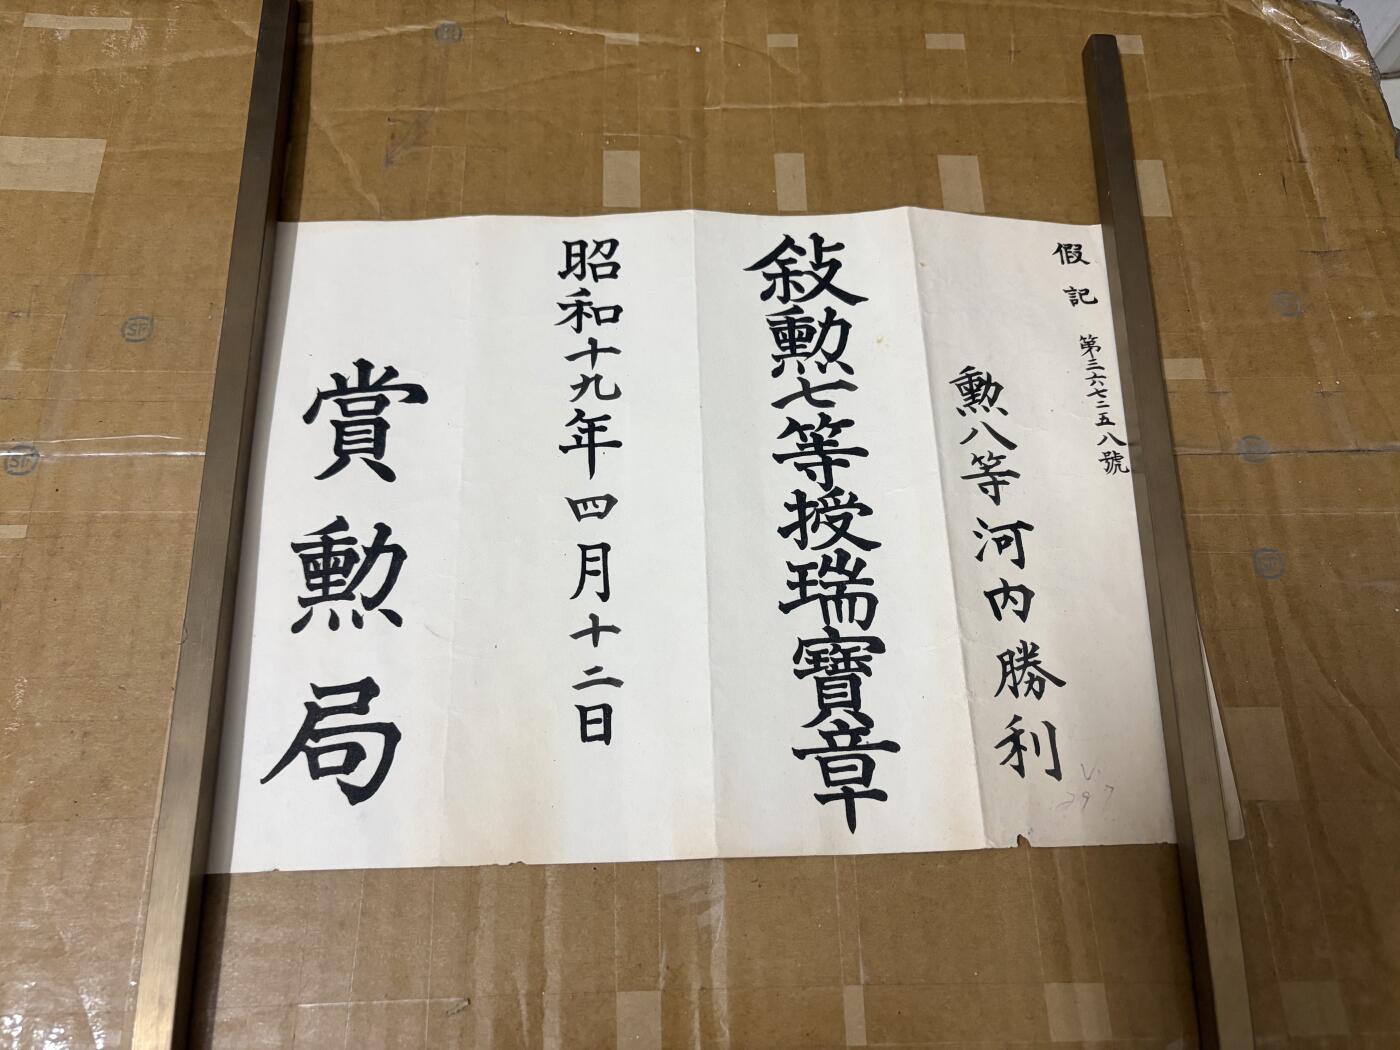 假記
第三六七二五八號
勲八等河内勝利
敍勲七等授瑞寶章
昭和十九年四月十二日
賞勲局
297
SF
SF
SF